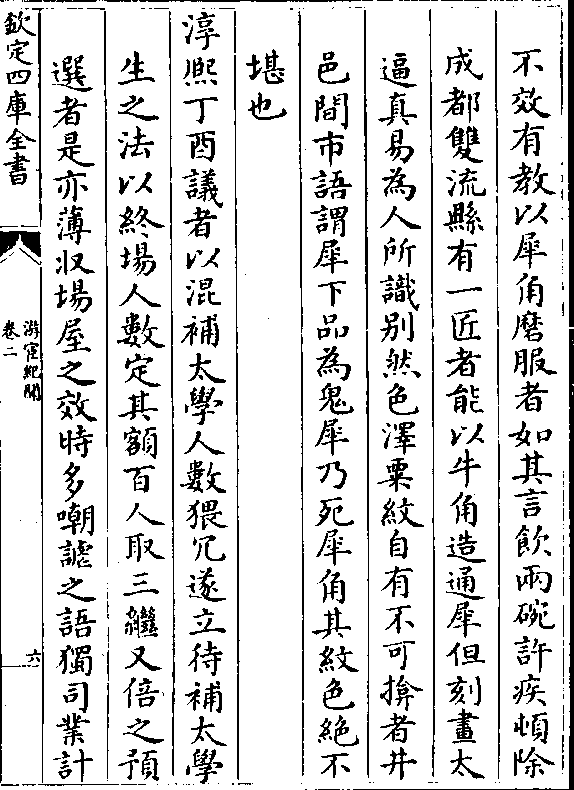 不效有教以犀角磨服者如其言飲兩碗許疾頓除
成都雙流縣有一匠者能以牛角造通犀但刻畫太
逼真易為人所識别然色澤粟紋自有不可揜者井
邑間市語謂犀下品為鬼犀乃死犀角其紋色絶不
堪也
淳熙丁酉議者以混補太學人數猥冗遂立待補太學
生之法以終場人數定其額百人取三繼又倍之預
選者是亦薄収塲屋之效時多嘲謔之語獨司業計
欽定四庫全書
游宦紀聞
卷二
六